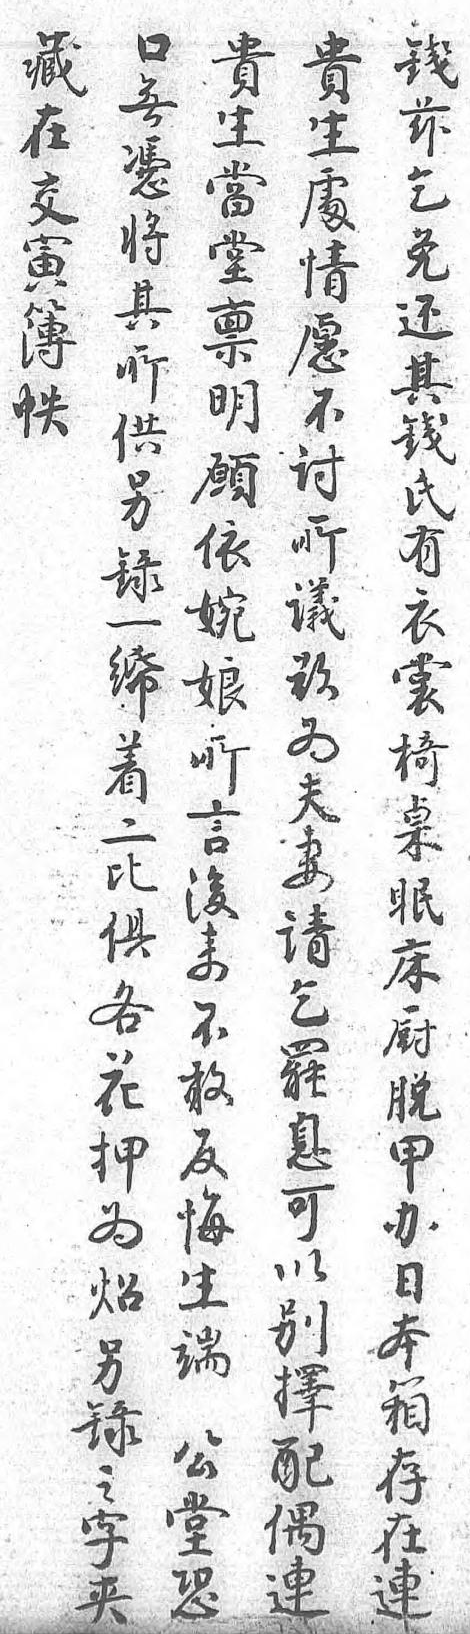 錢茲乞免还其錢氏有衣裳椅桌眠床厨脱甲办日本箱存在連
貴生處情愿不討所議欲为夫妻請乞罷息可以别擇配偶連
貴生當堂禀明願依婉娘所言後来不敢反悔生端公堂恐
口無憑将其所供另録一綈着二比俱各花押为炤另録之字夹
藏在交寅簿帙